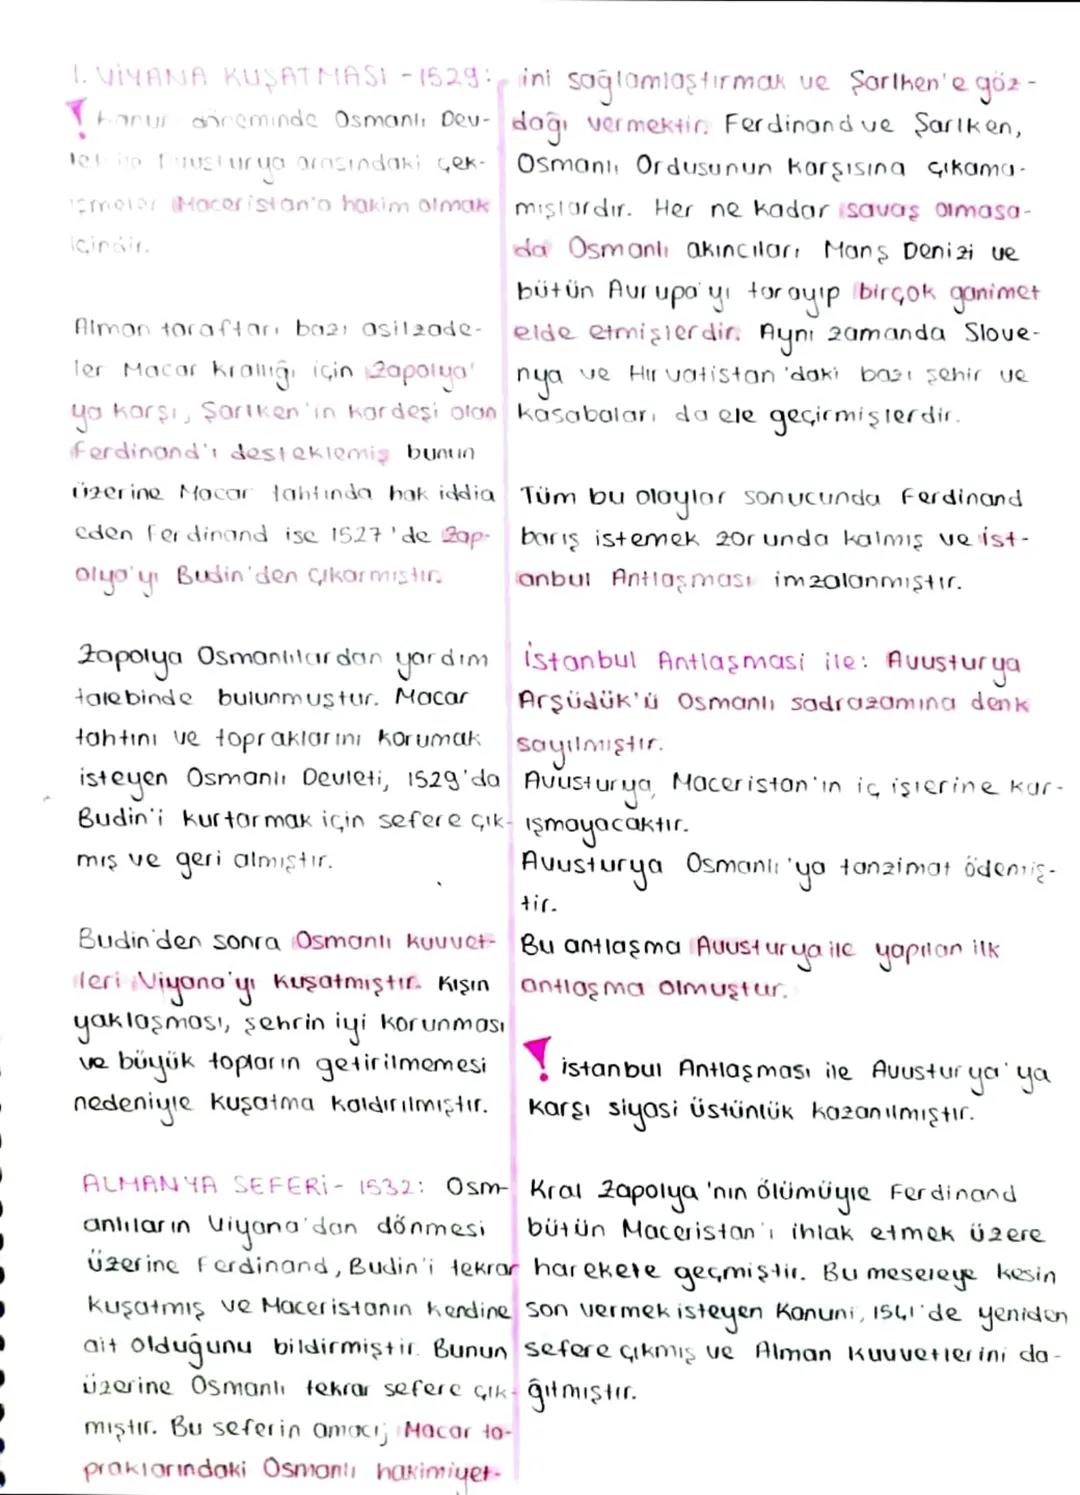 1. VİYANA KUŞATMASI - 1529:
! Kanuni döneminde Osmanlı Dev-
leti ile Avusturya arasındaki çek-
işmeler Maceristan'a hakim olmak
içindir.
Alman taraftarı bazı asilzade-
ler Macar krallığı için Zapolya'
ya karşı, Şarlken'in kardeşi olan
Ferdinand'ı desteklemiş bunun
üzerine Macar tahtında hak iddia
eden Ferdinand ise 1527'de Zap-
olya'yı Budin'den çıkarmıştır.
Zapolya Osmanlılardan yardım
talebinde bulunmuştur. Macar
tahtını ve topraklarını korumak
isteyen Osmanlı Devleti, 1529'da
Budin'i kurtarmak için sefere çık-
mış ve geri almıştır.
Budin'den sonra Osmanlı kuvvet-
leri Viyana'yı kuşatmıştır. Kışın
yaklaşması, şehrin iyi korunması
ve büyük topların getirilmemesi
nedeniyle kuşatma kaldırılmıştır.
ALMANYA SEFERİ - 1532: Osm-
anlıların Viyana'dan dönmesi
üzerine Ferdinand, Budin'i tekrar
kuşatmış ve Maceristanın kendine
ait olduğunu bildirmiştir. Bunun
üzerine Osmanlı tekrar sefere çık-
mıştır. Bu seferin amacı; Macar to-
praklarındaki Osmanlı hakimiyet-
ini sağlamlaştırmak ve Şarlken'e göz-
dağı vermektir. Ferdinand ve Şarlken,
Osmanlı Ordusunun karşısına çıkama-
mışlardır. Her ne kadar savaş olmasa-
da Osmanlı akıncıları Manş Denizi ve
bütün Avrupa'yı tarayıp birçok ganimet
elde etmişlerdir. Aynı zamanda Slove-
nya ve Hırvatistan'daki bazı şehir ve
kasabaları da ele geçirmişlerdir.
Tüm bu olaylar sonucunda Ferdinand
barış istemek zorunda kalmış ve İst-
anbul Antlaşması imzalanmıştır.
İstanbul Antlaşması ile: Avusturya
Arşüdük'ü Osmanlı sadrazamına denk
sayılmıştır.
Avusturya, Maceristan'ın iç işlerine kar-
ışmayacaktır.
Avusturya Osmanlı'ya tanzimat ödemiş-
tir.
Bu antlaşma Avusturya ile yapılan ilk
antlaşma olmuştur.
! İstanbul Antlaşması ile Avusturya'ya
karşı siyasi üstünlük kazanılmıştır.
Kral Zapolya'nın ölümüyle Ferdinand
bütün Maceristan'ı ihlak etmek üzere
harekete geçmiştir. Bu meseleye kesin
son vermek isteyen Kanuni, 1541'de yeniden
sefere çıkmış ve Alman kuvvetlerini da-
ğıtmıştır.